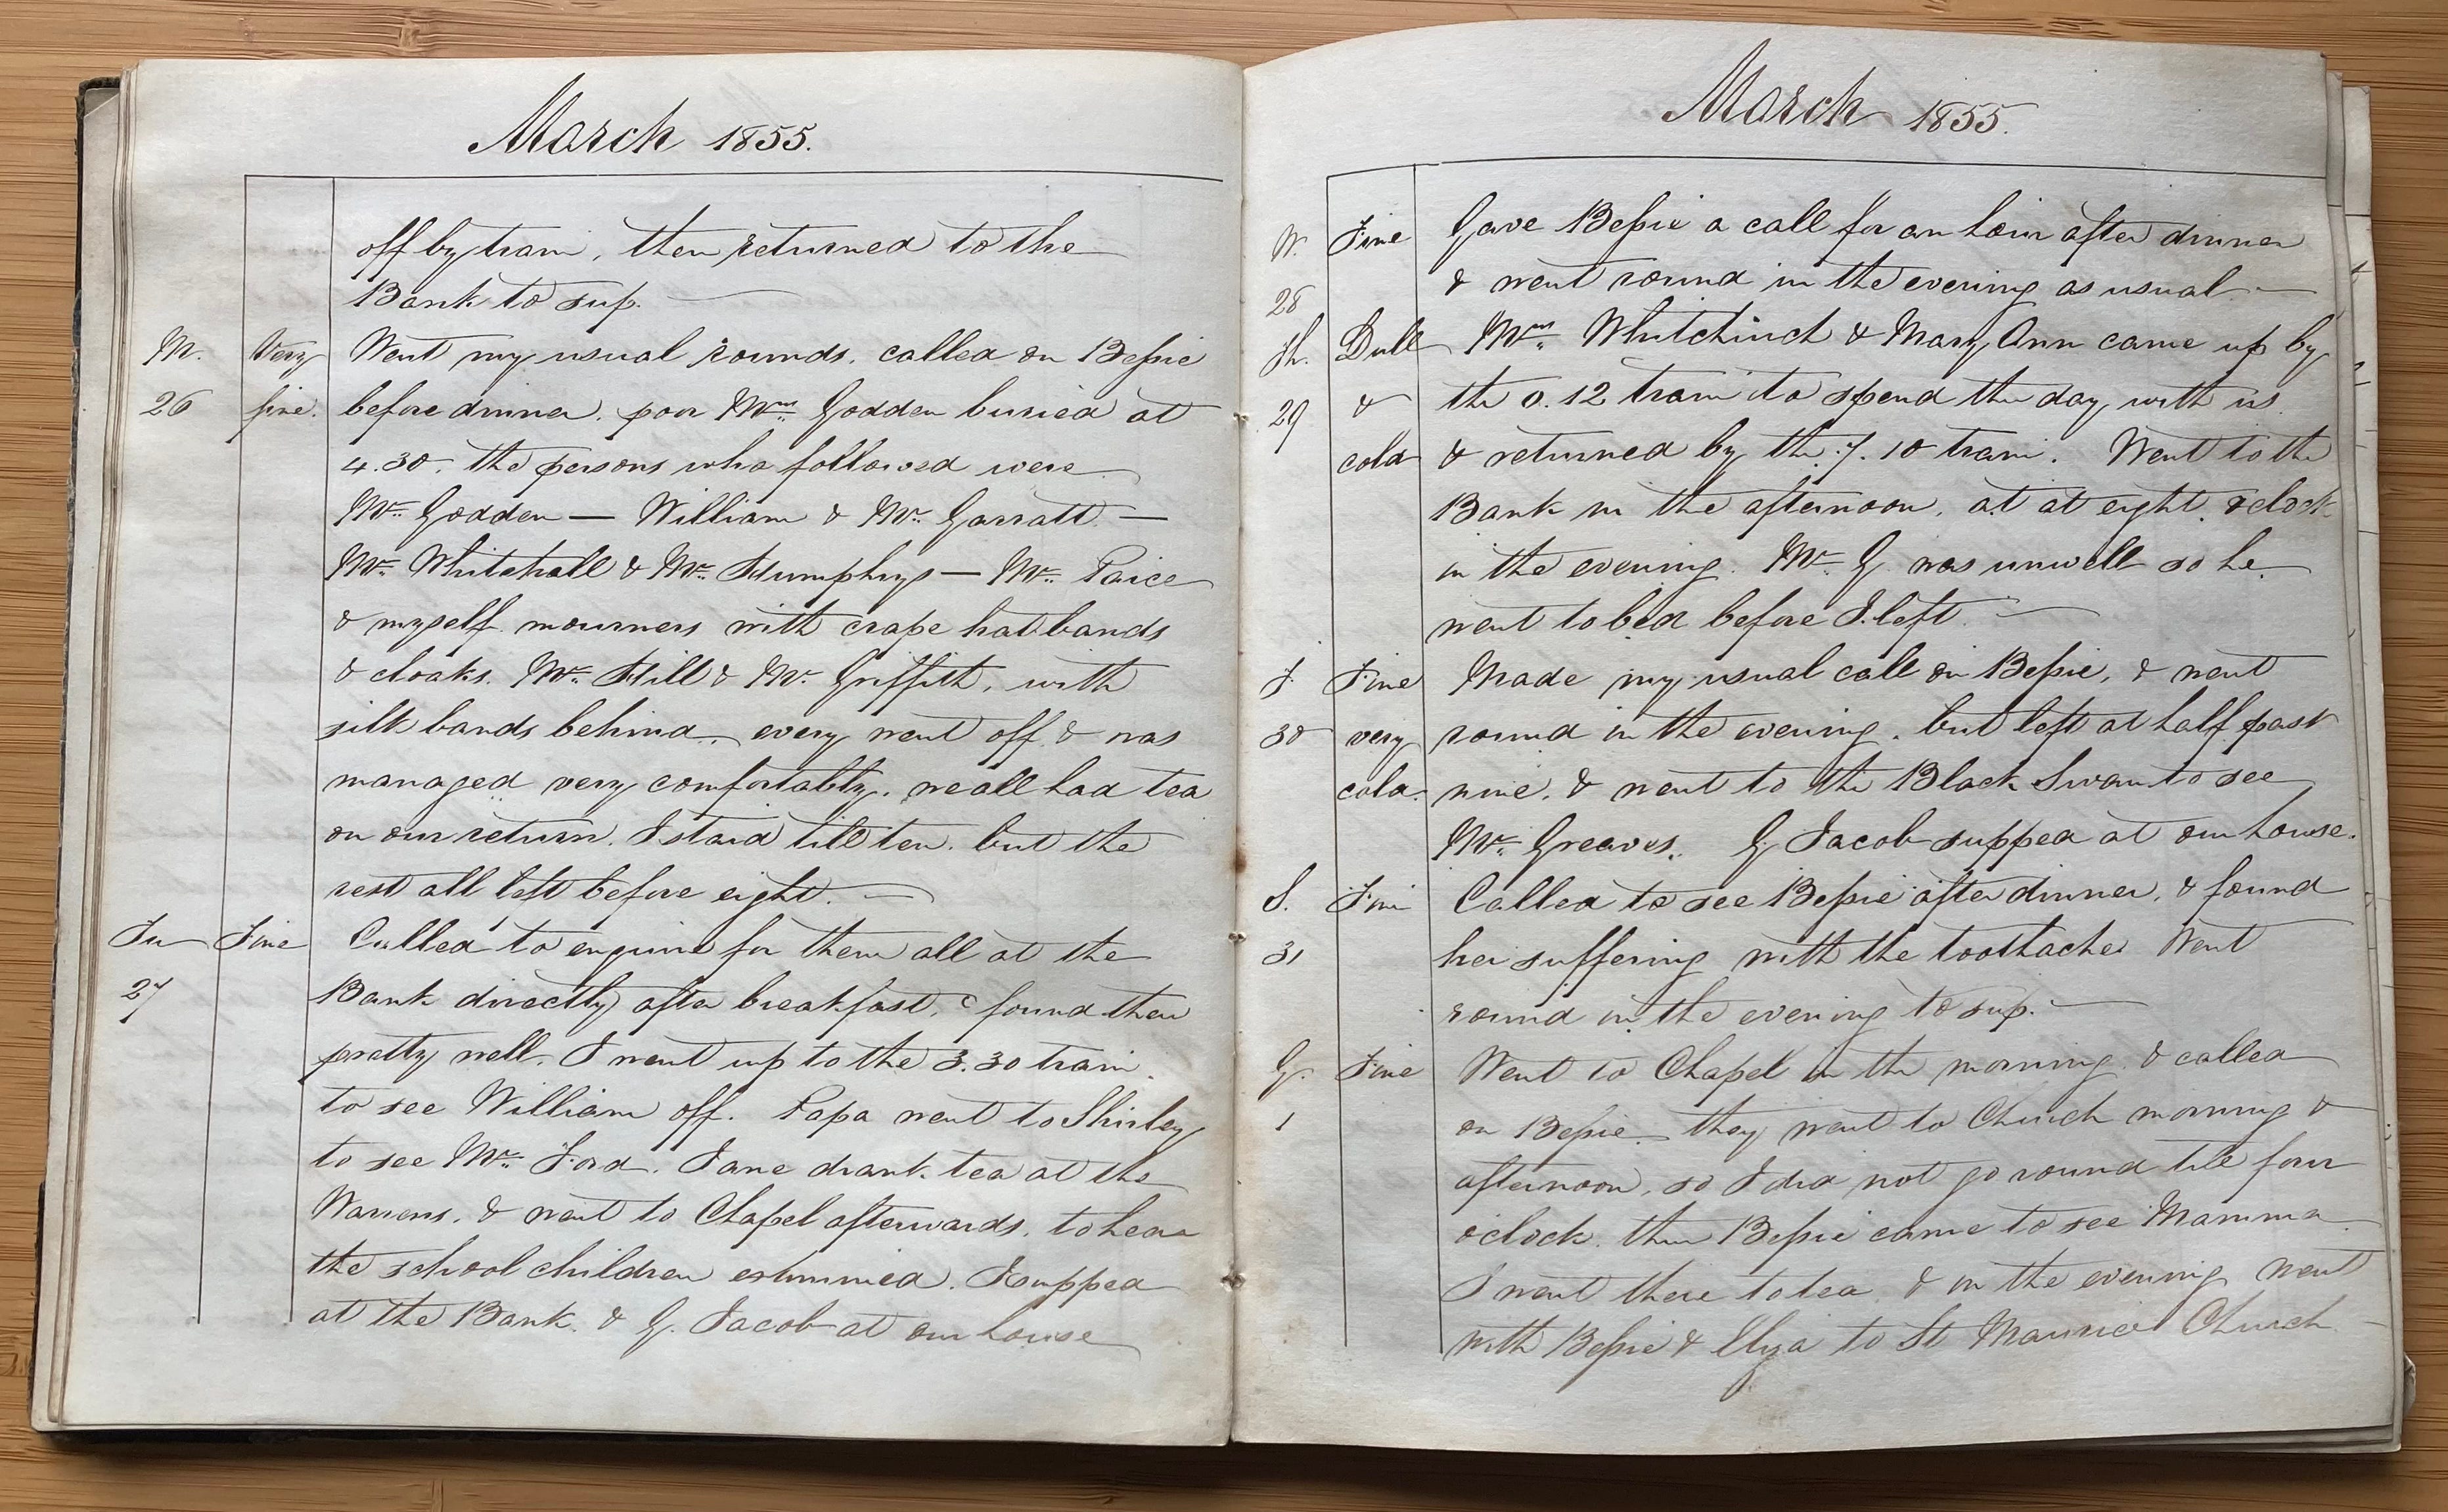 March 1855.
off by train, then returned to the
Bank to sup. —
M. Very Went my usual rounds. called on Bessie
26 fine. before dinner. poor Mrs. Godden buried at
4.30. the persons who followed were
Mr. Godden — William & Mr. Garratt. —
Mr. Whitehall & Mr. Humphrys — Mr. Paice
& myself mourners with crape hat bands
& cloaks. Mr. Hill & Mr. Griffith, with
silk bands behind, every went off & was
managed very comfortably. we all had tea
on our return. I staid till ten. but the
rest all left before eight. —
Tu Fine Called to enquire for them all at the
27 Bank directly after breakfast, & found them
pretty well. I went up to the 3.30 train
to see William off. Papa went to Shirley
to see Mr. Ford. Jane drank tea at the
Warrens. & went to Chapel afterwards. to hear
the school children examined. I supped
at the Bank. & G. Jacob at our house
March 1855.
W. Fine Gave Bessie a call for an hour after dinner
28 & went round in the evening as usual. —
Th. Dull Mrs. Whitchurch & Mary Ann came up by
29 & the 0.12 train to spend the day with us
cold & returned by the 7.10 train. Went to the
Bank in the afternoon, at at eight o'clock
in the evening. Mr. G. was unwell so he
went to bed before I left. —
F. Fine Made my usual call on Bessie, & went
30 very round in the evening. but left at half past
cold. nine. & went to the Black Swan to see
Mr. Greaves. G Jacob supped at our house.
S. Fine Called to see Bessie after dinner, & found
31 her suffering with the toothache. Went
round in the evening to sup. —
G. Fine Went to Chapel in the morning & called
1 on Bessie. they went to Church morning &
afternoon, so I did not go round till four
o'clock. then Bessie came to see Mamma.
I went there to tea & in the evening went
with Bessie & Eliza to St Maurice Church —